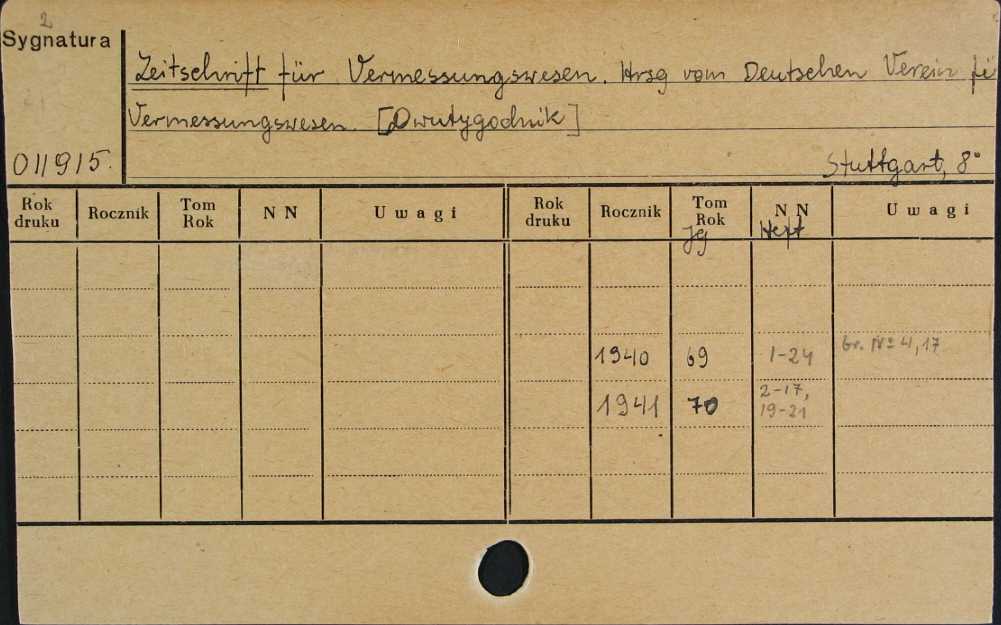 2
Sygnatura
Zeitschrift für Vermessungswesen. Hrsg vom Deutschen Verein fü
Vermessungswesen. [Dwutygodnik]
011915.
Stuttgart, 8°
Rok druku Rocznik Tom Rok N N Uwagi Rok druku Rocznik Tom Rok N N Uwagi
Jg Heft
1940 69 1-24 br. № 4, 17
1941 70 2-17,
19-21